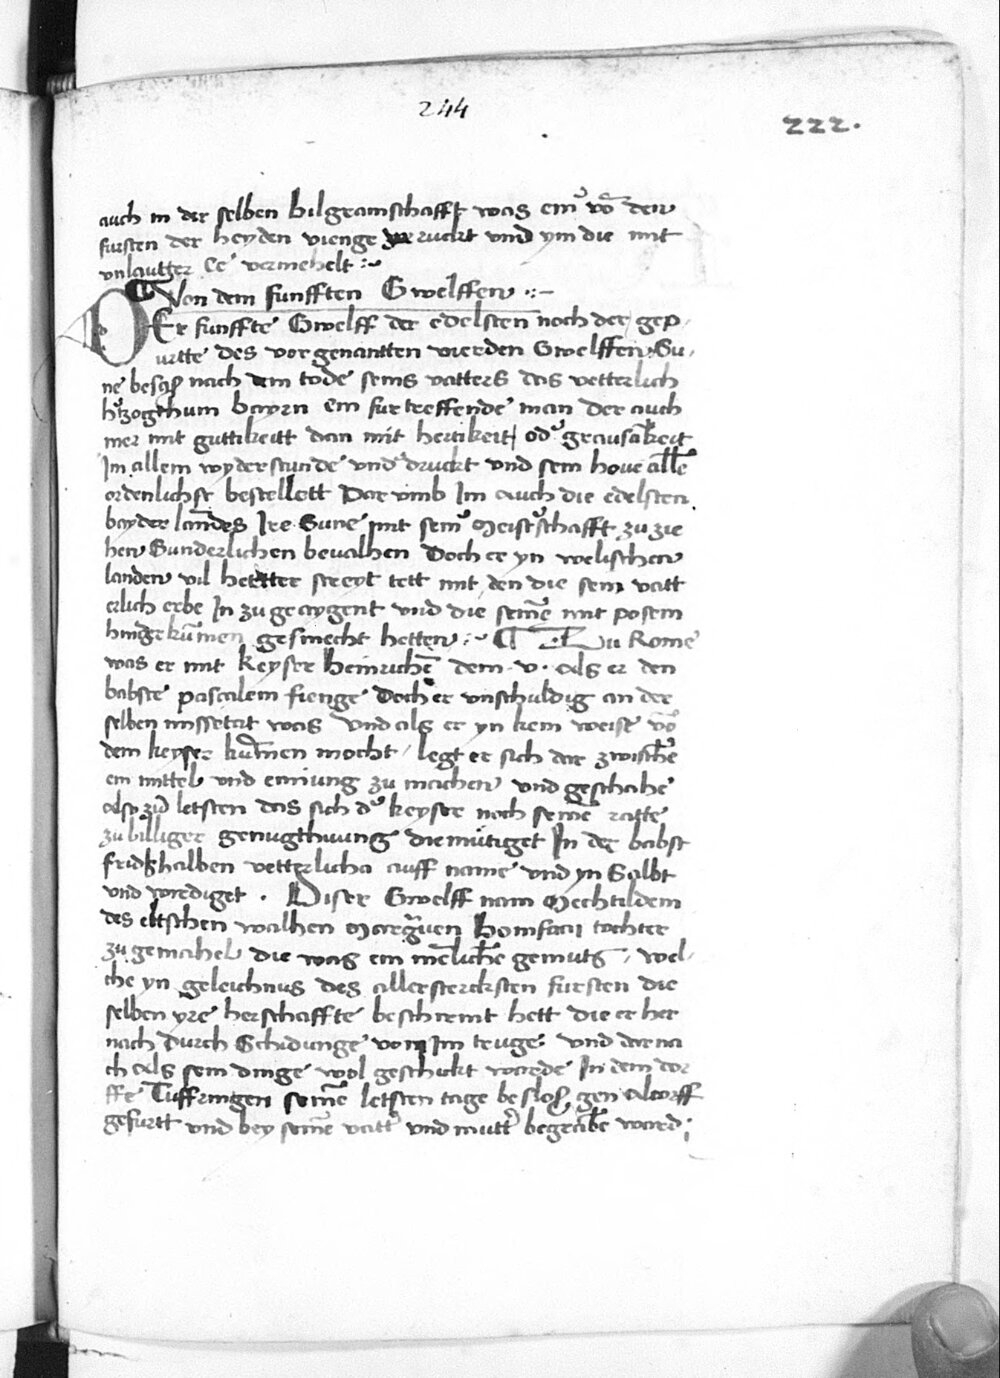 244
222.
auch in der selben bilgramschafft was einͦ võ den
fursten der heyden vienge verruckt vnd ym die mit
vnlautter Ee vermehelt :~
¶ Von dem funfften Gwelffen :~
DEr funffte Gwelff der edelsten noch der gep,
urtte des vorgenantten vierden Gwelffen Su,
ne besaß nach dem tode seins vatters das vetterlich
hͦtzogthum bayrn ein furtreffende man der auch
mer mit guttikeitt dan mit hertikeit odͦ grausãkeit
Im allem wyderstunde vndͦdruckt vnd sein houe alle
ordenlichst bestellett Dar vmb Im auch die edelsten
bayder landes Ire Sune mit seinͦ Meistͦschafft zu zie
hen Sunderlichen beualhen Doch er yn welischen
landen vil hertter streyt tett mit den die sein vatt
erlich erbe In zu geaygent vnd die seinẽ mit posem
hingekũmen gesmecht hetten :~ ¶ Zu Rome
was er mit keyser heinrichẽ dem .v. Als er den
babste pascalem fienge Doch er vnschuldig an der
selben missetat was Vnd als er yn kein weise võ
dem keyser kũmen mocht / legt er sich dar zwischẽ
ein mittel vnd einiung zu machen vnd geschahe
Also zũ letsten das sich dͦ keyser noch seinẽ ratte
zu billiger genugthuung diemütiget In der babst
fridshalben vetterlichn auff name vnd yn Salbt
vnd wirdiget . Diser Gwelff nam Mechtildem
des eltschen walhen Margrauen bonifacii tochter
zu gemahel die was ein mẽliche gemuts / wel,
che yn geleichnus des allerstercksten fursten die
selben yre herschaffte beschirmt hett die er her
nach durch Schidunge von Im truge Vnd darna
ch Als sein dinge wol geschickt warde In dem dor
ffe Tuffringen seinẽ letsten tage besloß gen Altorff
gefurtt vnd bey seinẽ vattͦ vnd muttͦ begrabẽ ward ;